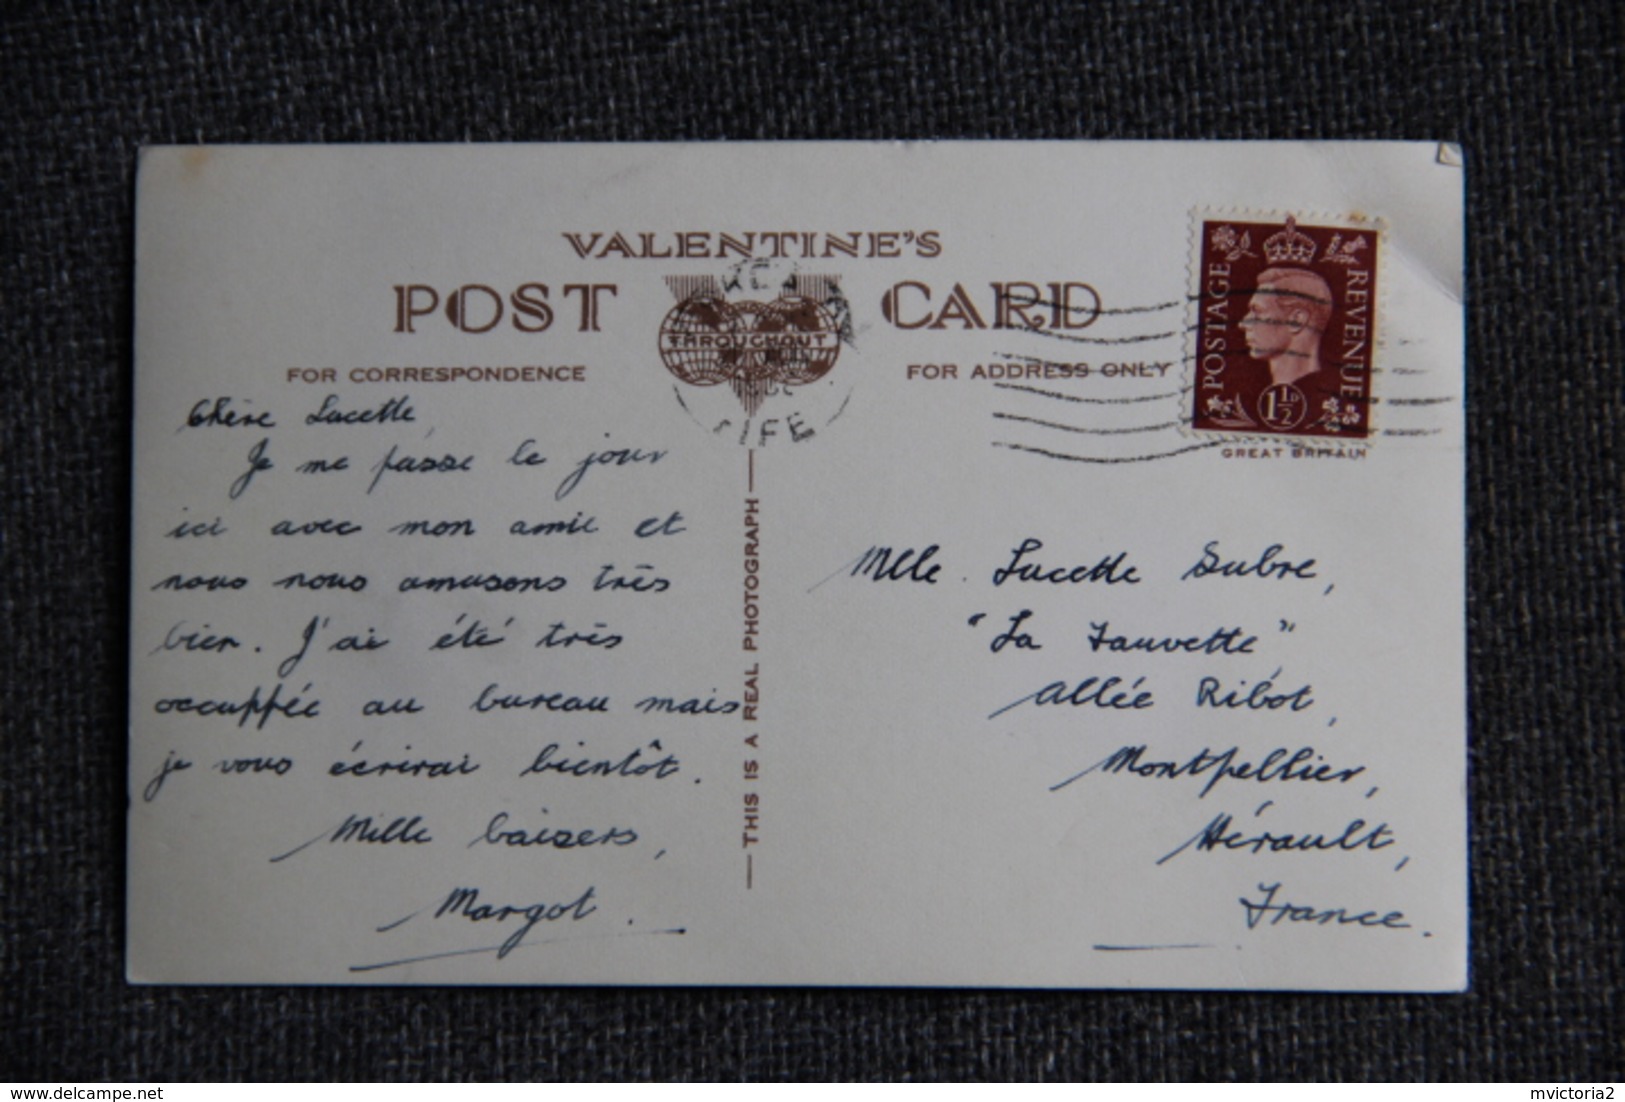 VALENTINE'S
POST CARD
THROUGHOUT
FOR CORRESPONDENCE
FOR ADDRESS ONLY
FIFE
POSTAGE
REVENUE
1½D
GREAT BRITAIN
Chère Lucette,
Je me passe le jour
ici avec mon amie et
nous nous amusons très
bien. J'ai été très
occuppée au bureau mais
je vous écrirai bientôt.
Mille baisers,
Margot.
THIS IS A REAL PHOTOGRAPH
Mlle. Lucette Subre,
"La Fauvette",
Allée Ribot,
Montpellier,
Hérault,
France.
mvictoria2